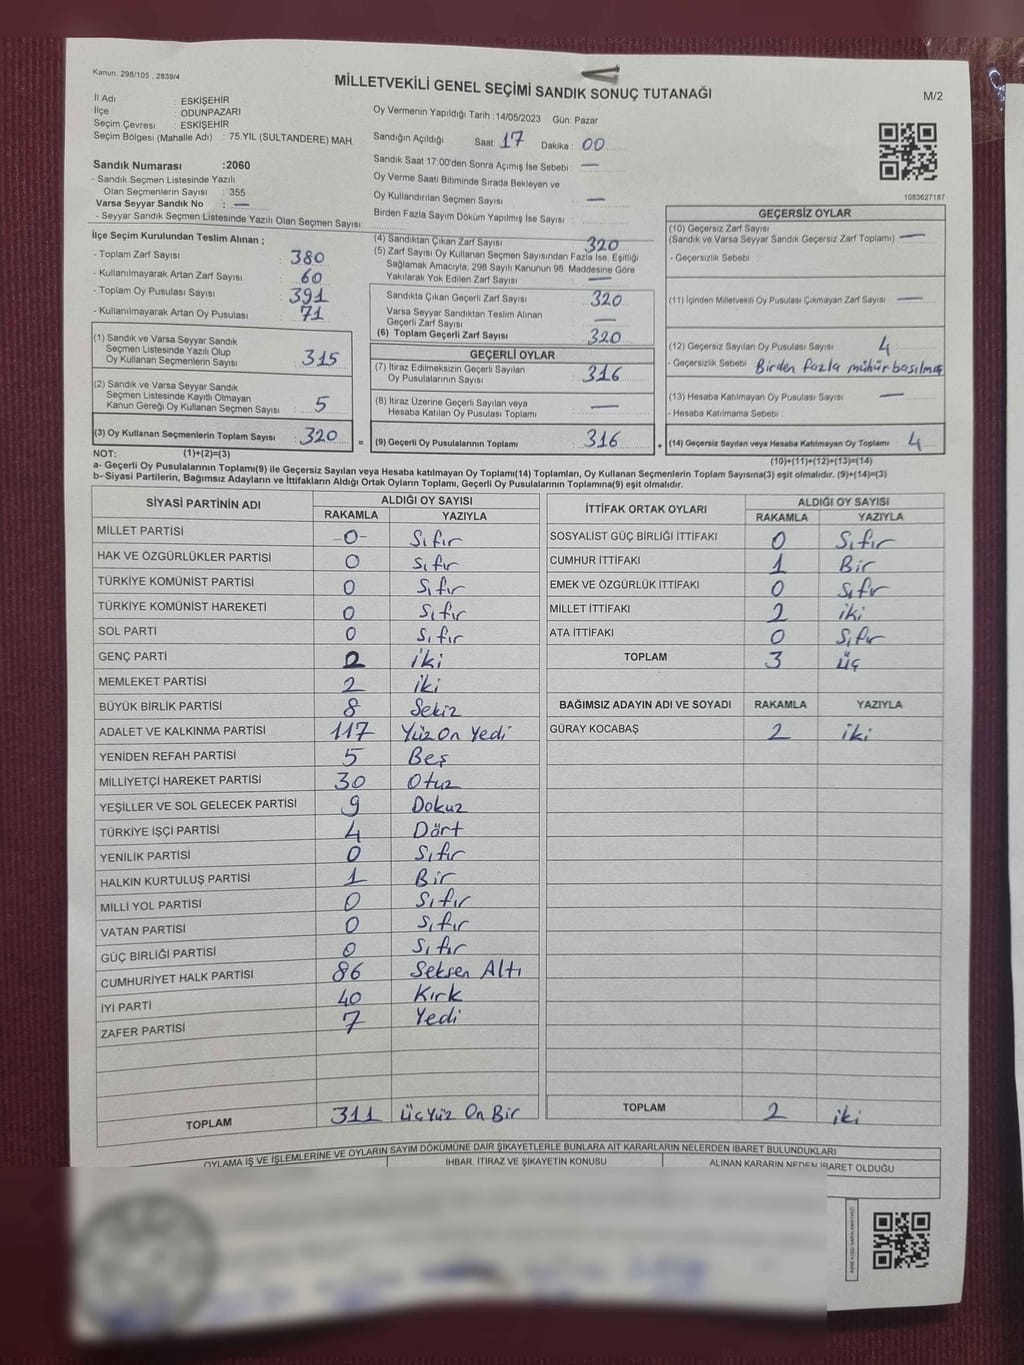 Kanun: 298/105 , 2839/4
MİLLETVEKİLİ GENEL SEÇİMİ SANDIK SONUÇ TUTANAĞI
M/2
İl Adı : ESKİŞEHİR
İlçe : ODUNPAZARI
Seçim Çevresi : ESKİŞEHİR
Seçim Bölgesi (Mahalle Adı) : 75.YIL (SULTANDERE) MAH.
Sandık Numarası :2060
- Sandık Seçmen Listesinde Yazılı
Olan Seçmenlerin Sayısı : 355
Varsa Seyyar Sandık No : —
- Seyyar Sandık Seçmen Listesinde Yazılı Olan Seçmen Sayısı :
Oy Vermenin Yapıldığı Tarih :14/05/2023 Gün: Pazar
Sandığın Açıldığı Saat: 17 Dakika : 00
Sandık Saat 17:00'den Sonra Açımış İse Sebebi : —
Oy Verme Saati Bitiminde Sırada Bekleyen ve
Oy Kullandırılan Seçmen Sayısı : —
Birden Fazla Sayım Döküm Yapılmış İse Sayısı :
1083627187
İlçe Seçim Kurulundan Teslim Alınan ;
- Toplam Zarf Sayısı : 380
- Kullanılmayarak Artan Zarf Sayısı : 60
- Toplam Oy Pusulası Sayısı : 391
- Kullanılmayarak Artan Oy Pusulası : 71
(1) Sandık ve Varsa Seyyar Sandık
Seçmen Listesinde Yazılı Olup
Oy Kullanan Seçmenlerin Sayısı : 315
(2) Sandık ve Varsa Seyyar Sandık
Seçmen Listesinde Kayıtlı Olmayan
Kanun Gereği Oy Kullanan Seçmen Sayısı : 5
(3) Oy Kullanan Seçmenlerin Toplam Sayısı : 320 =
(4) Sandıktan Çıkan Zarf Sayısı : 320
(5) Zarf Sayısı Oy Kullanan Seçmen Sayısından Fazla İse, Eşitliği
Sağlamak Amacıyla, 298 Sayılı Kanunun 98. Maddesine Göre
Yakılarak Yok Edilen Zarf Sayısı : —
Sandıkta Çıkan Geçerli Zarf Sayısı : 320
Varsa Seyyar Sandıktan Teslim Alınan
Geçerli Zarf Sayısı : —
(6) Toplam Geçerli Zarf Sayısı : 320
GEÇERLİ OYLAR
(7) İtiraz Edilmeksizin Geçerli Sayılan
Oy Pusulalarının Sayısı : 316
(8) İtiraz Üzerine Geçerli Sayılan veya
Hesaba Katılan Oy Pusulası Toplamı : —
(9) Geçerli Oy Pusulalarının Toplamı : 316 +
GEÇERSİZ OYLAR
(10) Geçersiz Zarf Sayısı
(Sandık ve Varsa Seyyar Sandık Geçersiz Zarf Toplamı) : —
- Geçersizlik Sebebi :
(11) İçinden Milletvekili Oy Pusulası Çıkmayan Zarf Sayısı : —
(12) Geçersiz Sayılan Oy Pusulası Sayısı : 4
- Geçersizlik Sebebi : Birden fazla mühür basılmış
(13) Hesaba Katılmayan Oy Pusulası Sayısı : —
- Hesaba Katılmama Sebebi :
(14) Geçersiz Sayılan veya Hesaba Katılmayan Oy Toplamı : 4
NOT: (1)+(2)=(3)
(10)+(11)+(12)+(13)=(14)
a- Geçerli Oy Pusulalarının Toplamı(9) ile Geçersiz Sayılan veya Hesaba katılmayan Oy Toplamı(14) Toplamları, Oy Kullanan Seçmenlerin Toplam Sayısına(3) eşit olmalıdır. (9)+(14)=(3)
b- Siyasi Partilerin, Bağımsız Adayların ve İttifakların Aldığı Ortak Oyların Toplamı, Geçerli Oy Pusulalarının Toplamına(9) eşit olmalıdır.
SİYASİ PARTİNİN ADI ALDIĞI OY SAYISI
RAKAMLA YAZIYLA
MİLLET PARTİSİ -0- Sıfır
HAK VE ÖZGÜRLÜKLER PARTİSİ 0 Sıfır
TÜRKİYE KOMÜNİST PARTİSİ 0 Sıfır
TÜRKİYE KOMÜNİST HAREKETİ 0 Sıfır
SOL PARTİ 0 Sıfır
GENÇ PARTİ 2 iki
MEMLEKET PARTİSİ 2 iki
BÜYÜK BİRLİK PARTİSİ 8 Sekiz
ADALET VE KALKINMA PARTİSİ 117 Yüz On Yedi
YENİDEN REFAH PARTİSİ 5 Beş
MİLLİYETÇİ HAREKET PARTİSİ 30 Otuz
YEŞİLLER VE SOL GELECEK PARTİSİ 9 Dokuz
TÜRKİYE İŞÇİ PARTİSİ 4 Dört
YENİLİK PARTİSİ 0 Sıfır
HALKIN KURTULUŞ PARTİSİ 1 Bir
MİLLİ YOL PARTİSİ 0 Sıfır
VATAN PARTİSİ 0 Sıfır
GÜÇ BİRLİĞİ PARTİSİ 0 Sıfır
CUMHURİYET HALK PARTİSİ 86 Seksen Altı
İYİ PARTİ 40 Kırk
ZAFER PARTİSİ 7 Yedi
TOPLAM 311 ÜçYüz On Bir
İTTİFAK ORTAK OYLARI ALDIĞI OY SAYISI
RAKAMLA YAZIYLA
SOSYALİST GÜÇ BİRLİĞİ İTTİFAKI 0 Sıfır
CUMHUR İTTİFAKI 1 Bir
EMEK VE ÖZGÜRLÜK İTTİFAKI 0 Sıfır
MİLLET İTTİFAKI 2 iki
ATA İTTİFAKI 0 Sıfır
TOPLAM 3 üç
BAĞIMSIZ ADAYIN ADI VE SOYADI RAKAMLA YAZIYLA
GÜRAY KOCABAŞ 2 iki
TOPLAM 2 iki
OYLAMA İŞ VE İŞLEMLERİNE VE OYLARIN SAYIM DÖKÜMÜNE DAİR ŞİKAYETLERLE BUNLARA AİT KARARLARIN NELERDEN İBARET BULUNDUKLARI
İHBAR, İTİRAZ VE ŞİKAYETİN KONUSU
ALINAN KARARIN NEDEN İBARET OLDUĞU